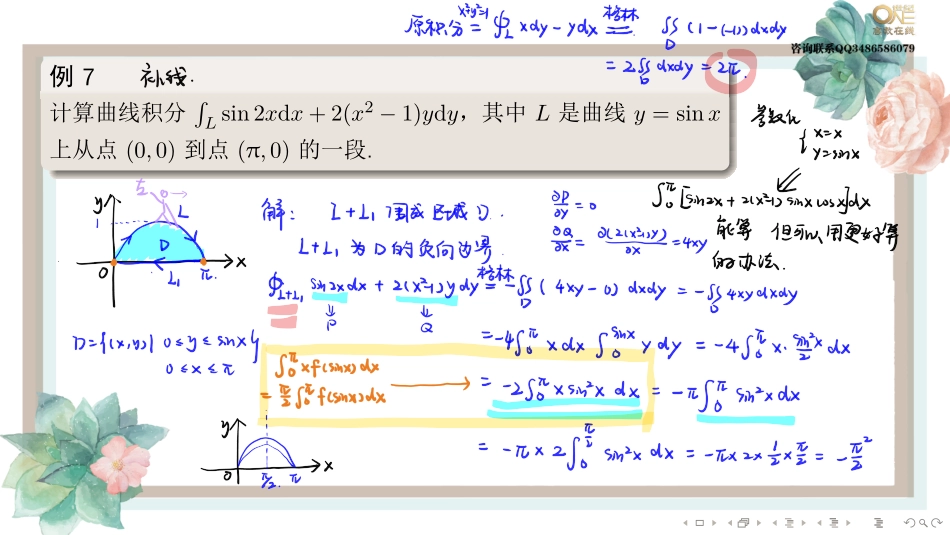 原积分 = ∮_L^{x²+y²=1} xdy - ydx =格林= ∬_D (1-(-1))dxdy
= 2∬_D dxdy = 2π.
咨询联系QQ3486586079
例 7 补线.
计算曲线积分 ∫_L sin 2xdx + 2(x² − 1)ydy，其中 L 是曲线 y = sin x
上从点 (0, 0) 到点 (π, 0) 的一段.
参数化 { x=x
y=sinx
∫_0^π [sin2x + 2(x²-1) sinx cosx]dx
能算 但可以用更好算
的办法.
y 1 L D O L₁ π x
解: L+L₁ 围成区域 D.
L+L₁ 为 D 的负向边界
∂P/∂y = 0
∂Q/∂x = ∂(2(x²-1)y)/∂x = 4xy
∮_{L+L₁} sin2xdx + 2(x²-1)ydy =格林= -∬_D (4xy-0)dxdy = -∬_D 4xydxdy
⇓ P ⇓ Q
D={(x,y)| 0≤y≤sinx
0≤x≤π }
= -4∫_0^π xdx ∫_0^{sinx} ydy = -4∫_0^π x· sin²x/2 dx
∫_0^π xf(sinx)dx
= π/2 ∫_0^π f(sinx)dx
= -2∫_0^π xsin²x dx = -π∫_0^π sin²xdx
= -π×2∫_0^{π/2} sin²x dx = -π×2×1/2×π/2 = -π²/2
y O π/2 π x